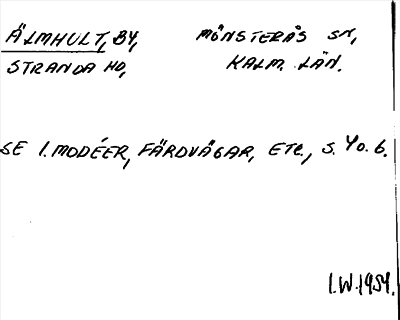 ÄLMHULT, BY, MÖNSTERÅS SN,
STRANDA HD, KALM. LÄN.
SE I. MODÉER, FÄRDVÄGAR, ETC., S. 40. 6.
I.W. 1954.